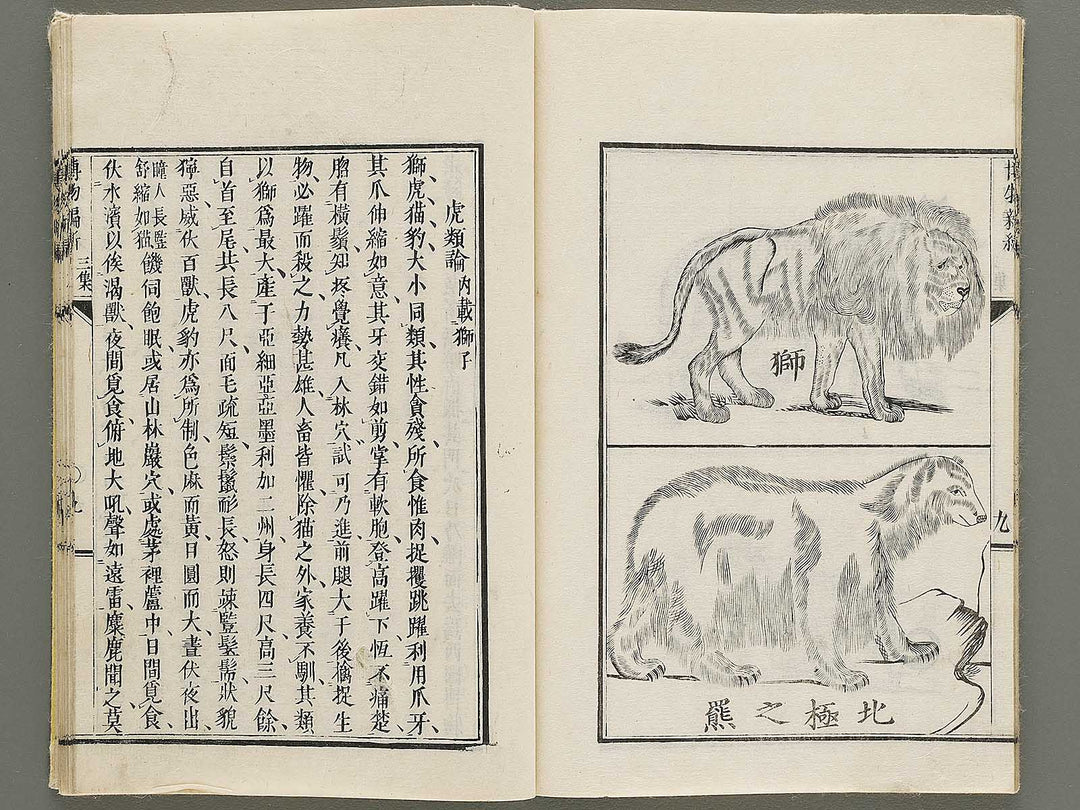 獅
北極之羆
博物新編
集
九
虎類論 內載獅子
獅虎猫豹大小同類其性貪殘所食惟肉捉攫跳躍利用爪牙
其爪伸縮如意其牙交錯如剪掌有軟胞登高躍下恆不痛楚
脗有橫鬚知疼覺癢凡入林穴試可乃進前腿大于後擒捉生
物必躍而殺之力勢甚雄人畜皆懼除猫之外家養不馴其類
以獅爲最大產于亞細亞亞墨利加二州身長四尺高三尺餘
自首至尾共長八尺面毛疏短鬃鬣耏長怒則竦豎髮鬅狀貌
獰惡威伏百獸虎豹亦爲所制色麻而黃目圓而大晝伏夜出
瞳人長豎舒縮如猫饑伺飽眠或居山林巖穴或處茅裡蘆中日間覓食
伏水濱以俟渴獸夜間覓食俯地大吼聲如遠雷麋鹿聞之莫
博物新編 三集